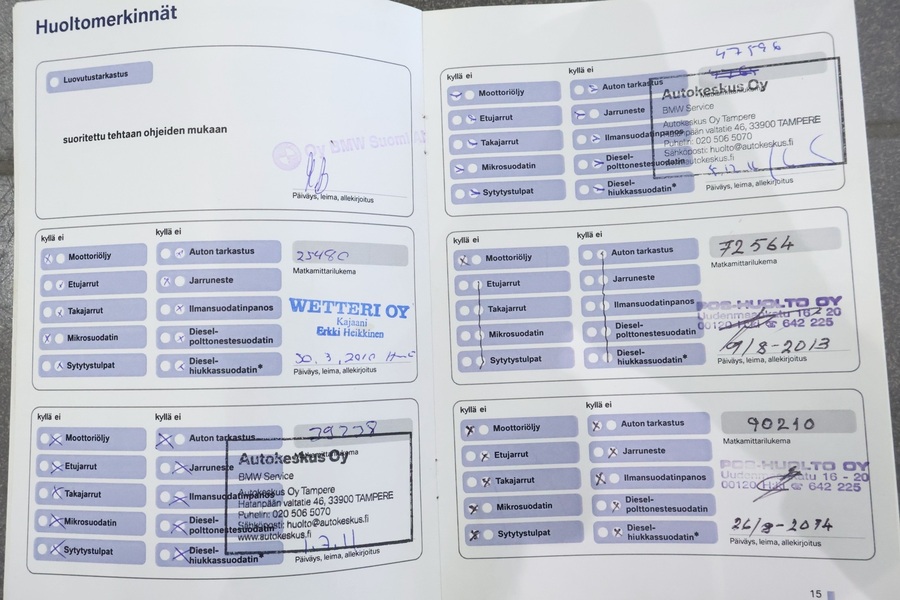 Huoltomerkinnät
Luovutustarkastus
suoritettu tehtaan ohjeiden mukaan
Oy BMW Suomi
Päiväys, leima, allekirjoitus
kyllä ei
kyllä ei
Moottoriöljy
Etujarrut
Takajarrut
Mikrosuodatin
Sytytystulpat
Auton tarkastus
Jarruneste
Ilmansuodatinpanos
Diesel-
polttonestesuodatin
Diesel-
hiukkassuodatin*
25480
Matkamittarilukema
WETTERI OY
Kajaani
Erkki Heikkinen
30.3.2010
Päiväys, leima, allekirjoitus
kyllä ei
kyllä ei
Moottoriöljy
Etujarrut
Takajarrut
Mikrosuodatin
Sytytystulpat
Auton tarkastus
Jarruneste
Ilmansuodatinpanos
Diesel-
polttonestesuodatin
Diesel-
hiukkassuodatin*
Matkamittarilukema
Autokeskus Oy
BMW Service
Autokeskus Oy Tampere
Hatanpään valtatie 46, 33900 TAMPERE
Puhelin: 020 506 5070
Sähköposti: huolto@autokeskus.fi
www.autokeskus.fi
1.7.11
Päiväys, leima, allekirjoitus
kyllä ei
kyllä ei
Moottoriöljy
Etujarrut
Takajarrut
Mikrosuodatin
Sytytystulpat
Auton tarkastus
Jarruneste
Ilmansuodatinpanos
Diesel-
polttonestesuodatin
Diesel-
hiukkassuodatin*
47596
Matkamittarilukema
Autokeskus Oy
BMW Service
Autokeskus Oy Tampere
Hatanpään valtatie 46, 33900 TAMPERE
Puhelin: 020 506 5070
Sähköposti: huolto@autokeskus.fi
www.autokeskus.fi
Päiväys, leima, allekirjoitus
kyllä ei
kyllä ei
Moottoriöljy
Etujarrut
Takajarrut
Mikrosuodatin
Sytytystulpat
Auton tarkastus
Jarruneste
Ilmansuodatinpanos
Diesel-
polttonestesuodatin
Diesel-
hiukkassuodatin*
72564
Matkamittarilukema
POR-HUOLTO OY
Uudenmaankatu 16 - 20
00120 642 225
9/8-2013
Päiväys, leima, allekirjoitus
kyllä ei
kyllä ei
Moottoriöljy
Etujarrut
Takajarrut
Mikrosuodatin
Sytytystulpat
Auton tarkastus
Jarruneste
Ilmansuodatinpanos
Diesel-
polttonestesuodatin
Diesel-
hiukkassuodatin*
90210
Matkamittarilukema
POR-HUOLTO OY
Uudenmaankatu 16 - 20
00120 642 225
26/8-2014
Päiväys, leima, allekirjoitus
15